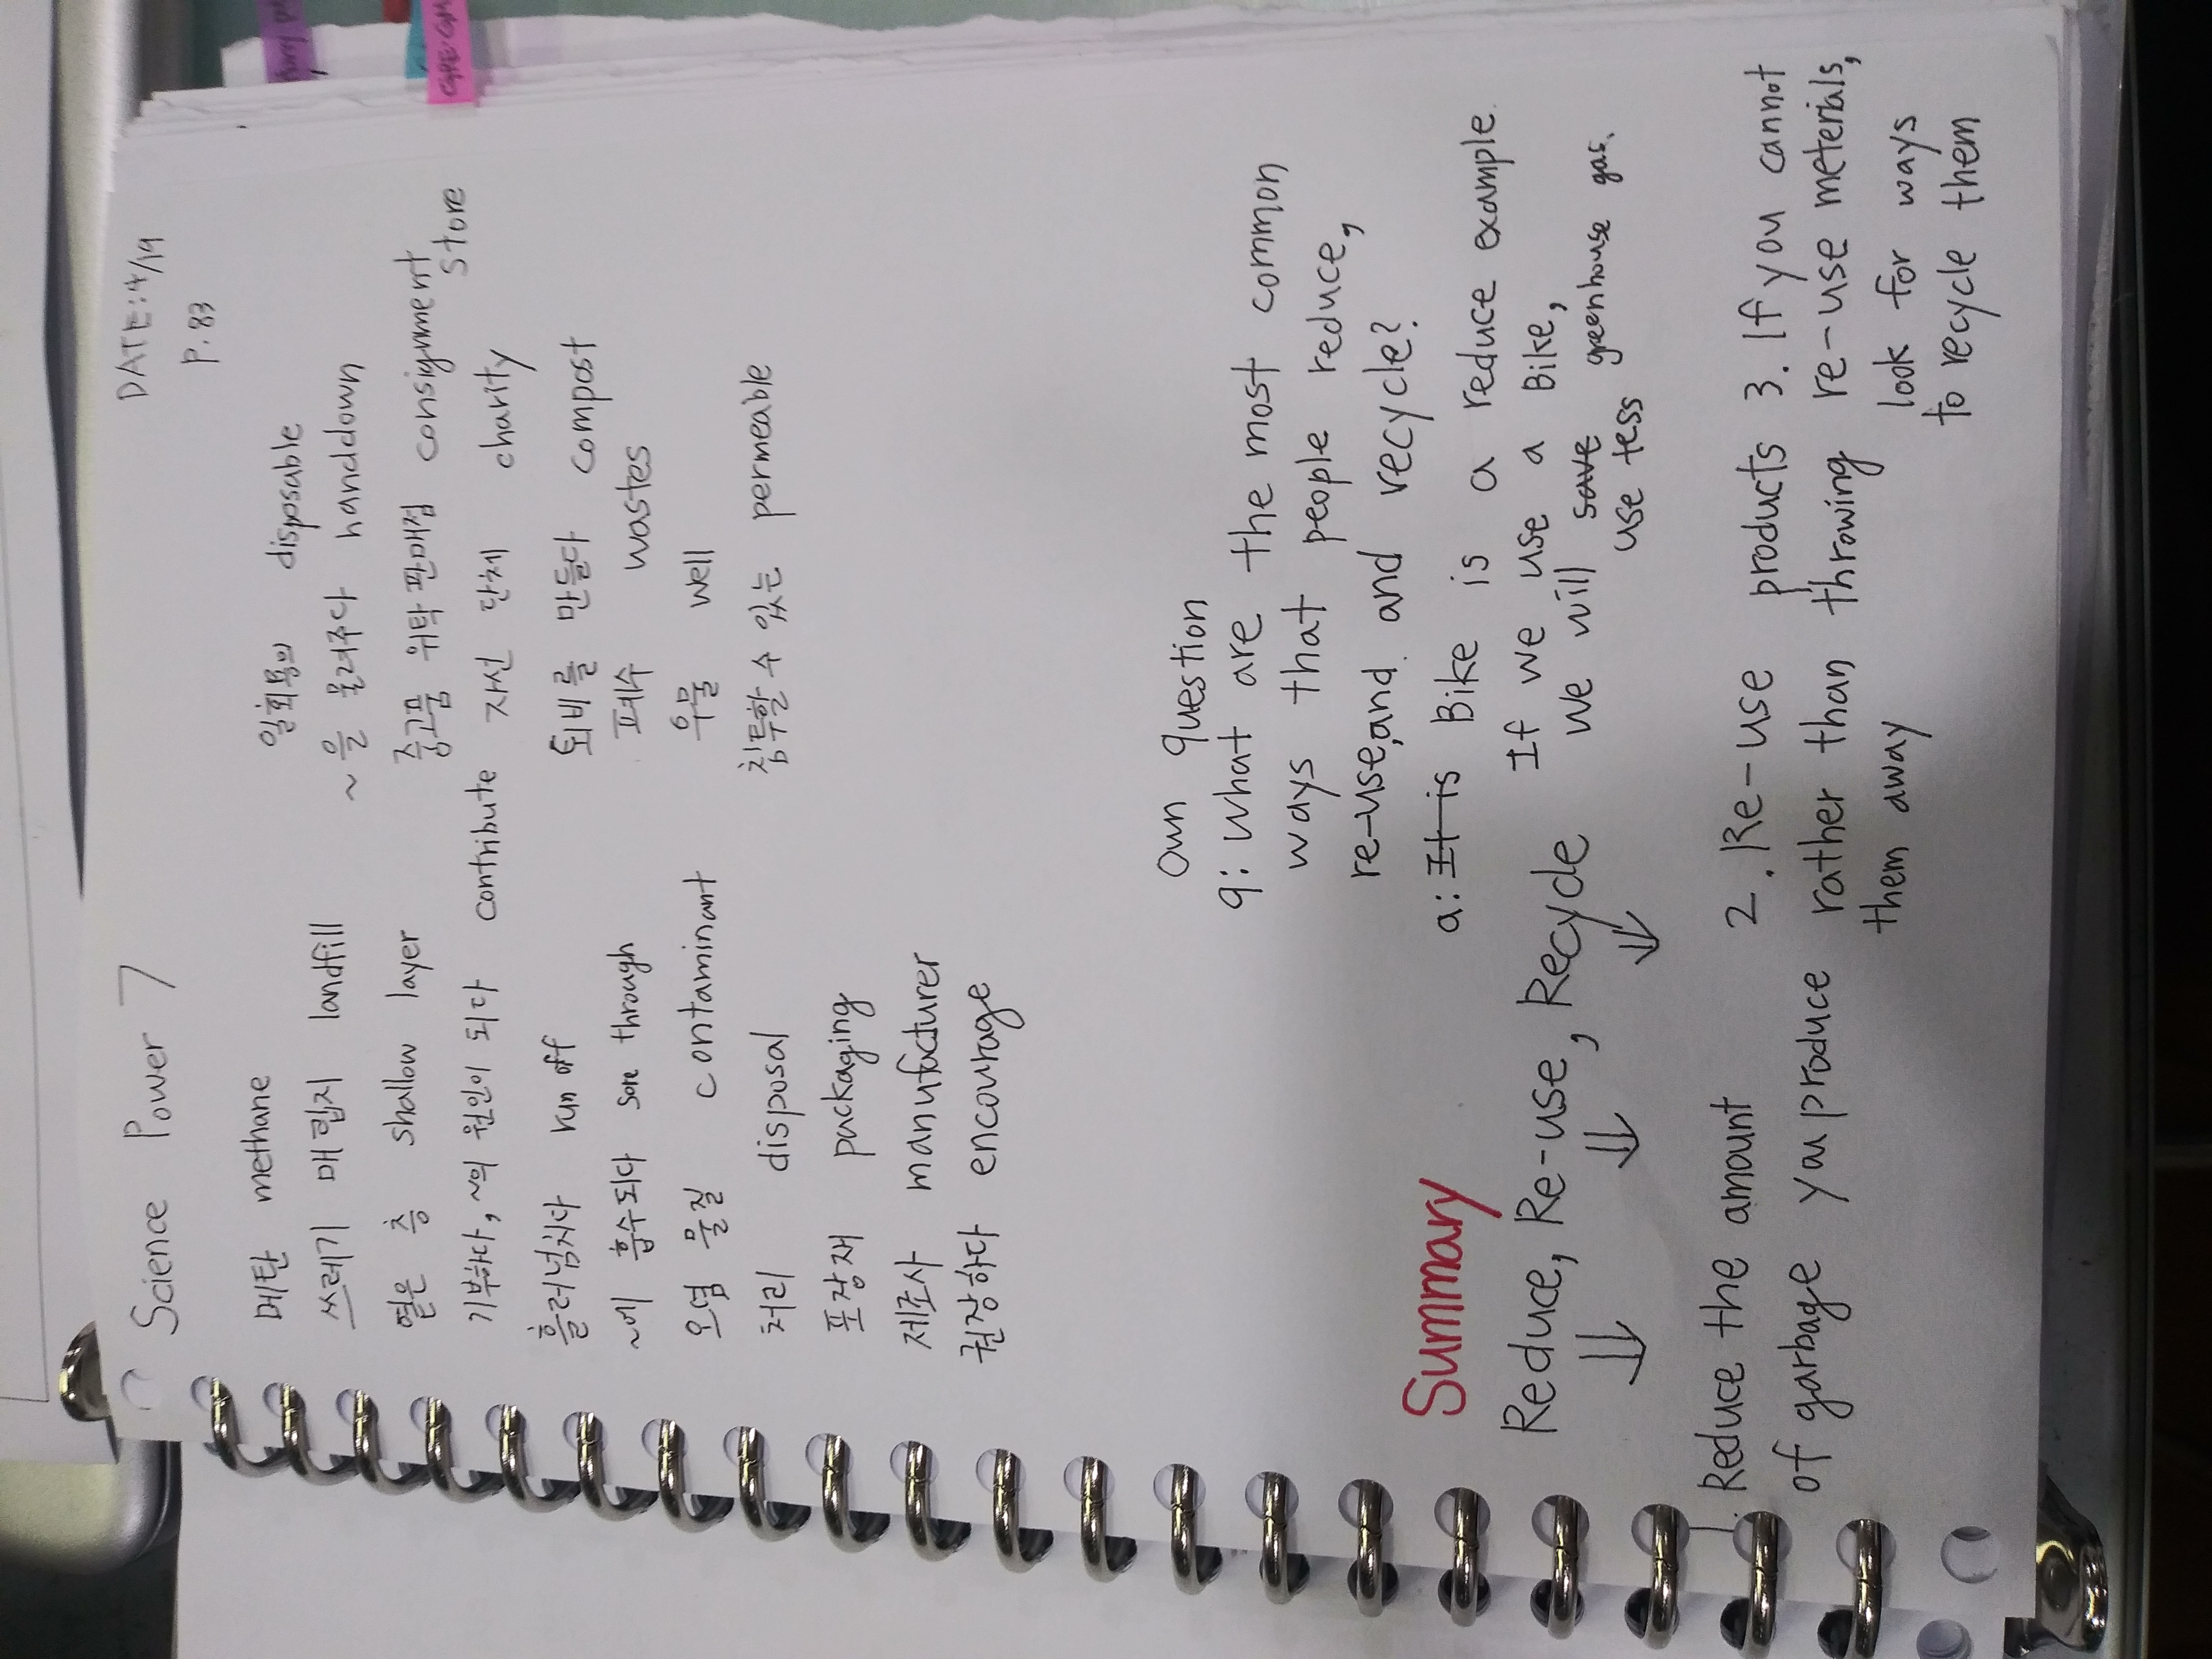 DATE: 4/19
Science Power 7
P. 83
메탄 methane
쓰레기 매립지 landfill
옅은 층 shallow layer
기부하다, ~의 원인이 되다 contribute
흘러넘치다 run off
~에 흡수되다 through
오염 물질 contaminant
처리 disposal
포장재 packaging
제조사 manufacturer
권장하다 encourage
일회용의 disposable
~을 물려주다 handdown
중고품 위탁판매점 consignment
store
자선 단체 charity
퇴비를 만들다 compost
폐수 wastes
우물 well
침투할 수 있는 permeable
Own question
q: what are the most common
ways that people reduce,
re-use, and and recycle?
a: It is Bike is a reduce example.
If we use a Bike,
we will save greenhouse gas.
use less
Summary
Reduce, Re-use, Recycle
1. Reduce the amount
of garbage you produce
2. Re-use products
rather than throwing
them away
3. If you cannot
re-use meterials,
look for ways
to recycle them